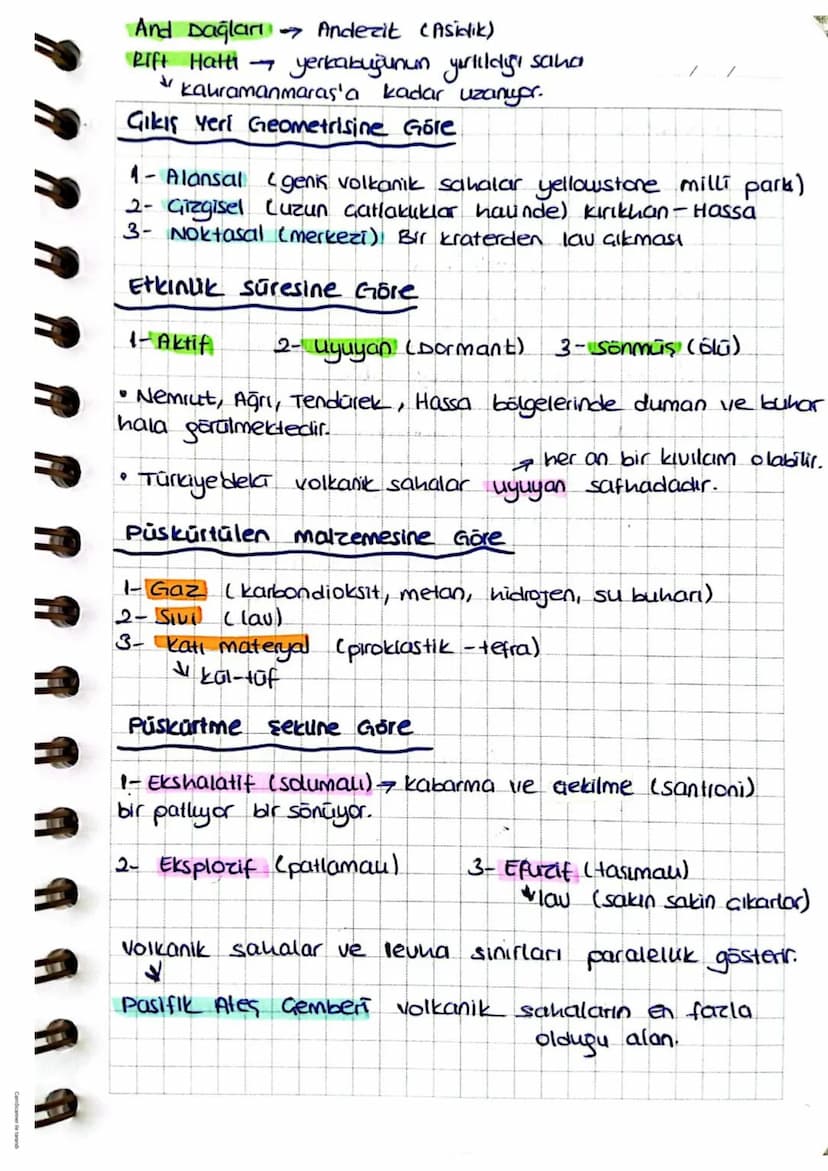 And Dağları → Andezit (Asidik)
Rift Hattı → yerkabuğunun yırtıldığı saha
↳ Kahramanmaraş'a kadar uzanıyor.
/ /
Çıkış Yeri Geometrisine Göre
1- Alansal (geniş volkanik sahalar yellowstone milli park)
2- Çizgisel (uzun çatlaklıklar halinde) Kırıkhan-Hassa
3- Noktasal (merkezi): Bir kraterden lav çıkması
Etkinlik Süresine Göre
1- Aktif 2- Uyuyan (Dormant) 3- Sönmüş (ölü)
• Nemrut, Ağrı, Tendürek, Hassa bölgelerinde duman ve buhar
hala görülmektedir.
→ her an bir kıvılcım olabilir.
• Türkiye'deki volkanik sahalar uyuyan safhadadır.
Püskürtülen malzemesine Göre
1- Gaz (karbondioksit, metan, hidrojen, su buharı)
2- Sıvı (lav)
3- Katı materyal (piroklastik-tefra)
↓ kül-tüf
Püskürtme Şekline Göre
1- Ekshalatif (solumalı) → kabarma ve çekilme (santroni)
bir patlıyor bir sönüyor.
2- Eksplozif (patlamalı) 3- Efüzif (taşımalı)
↓ lav (sakin sakin çıkarlar)
Volkanik sahalar ve levha sınırları paralellik gösterir.
↓
Pasifik Ateş Çemberi volkanik sahaların en fazla
olduğu alan.
CamScanner ile tarandı